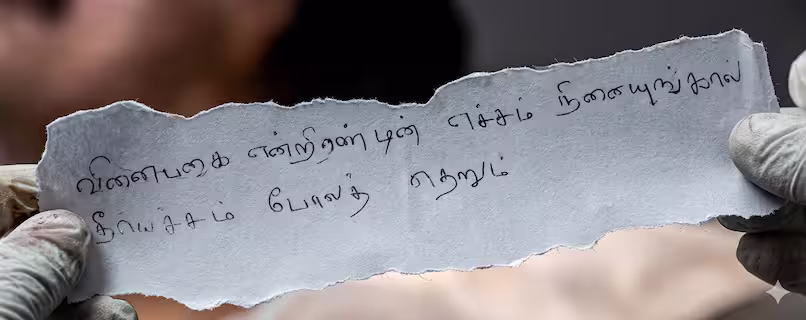 வினைபகை என்றிரண்டின் எச்சம் நினையுங்கால்
தீயெச்சம் போலத் தெறும்